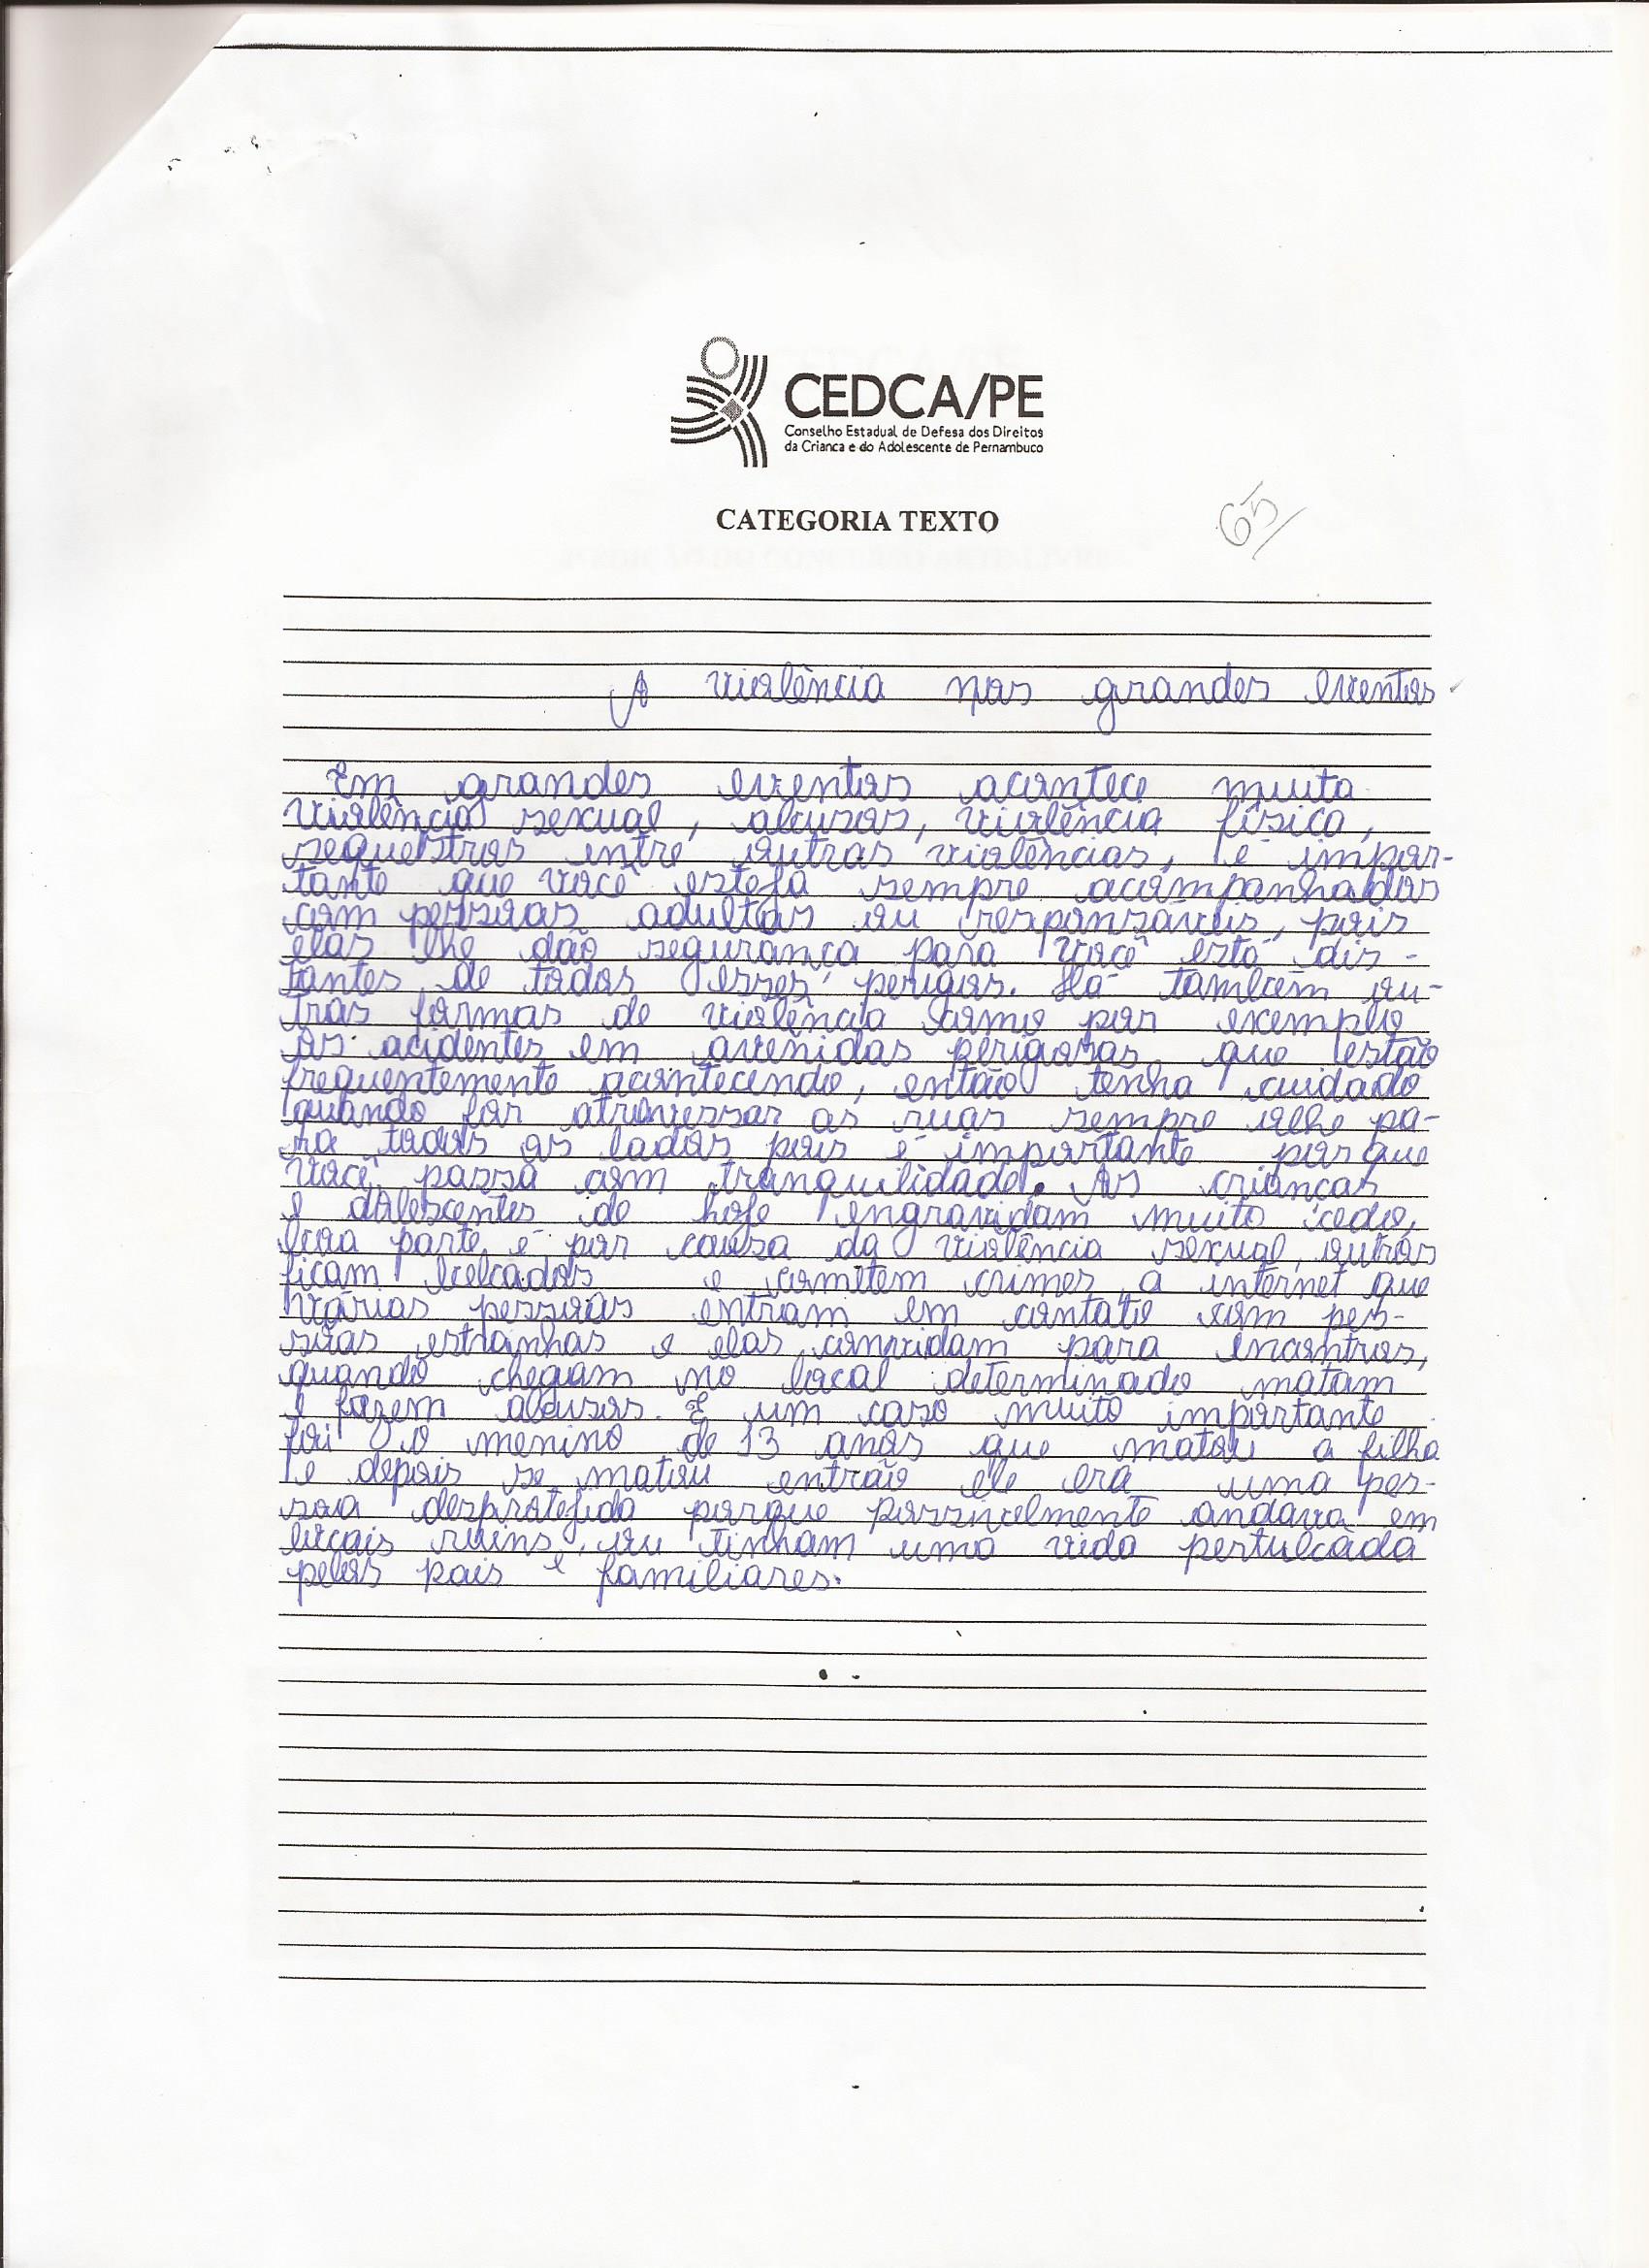 CEDCA/PE
Conselho Estadual de Defesa dos Direitos
da Crianca e do Adolescente de Pernambuco
CATEGORIA TEXTO
65
A violência nos grandes eventos
Em grandes eventos acontece muita
violência sexual, abusos, violência física,
sequestros entre outras violências, é impor-
tante que você esteja sempre acompanhados
com pessoas adultas ou responsáveis, pois
elas lhe dão segurança para você está dis-
tantes de todos esses perigos. Há também ou-
tras formas de violência como por exemplo
os acidentes em avenidas perigosas que estão
frequentemente acontecendo, então tenha cuidado
quando for atravessar as ruas sempre olhe pa-
ra todos os lados pois é importante por que
você passa com tranquilidade. As crianças
e adolescentes de hoje engravidam muito cedo,
boa parte é por causa da violência sexual, outras
ficam e cometem crimes, a internet que
várias pessoas entram em contato com pes-
soas estranhas e elas convidam para encontros,
quando chegam no local determinado matam
e fazem abusos. E um caso muito importante
foi o menino de 13 anos que matou a filha
e depois se matou entrão ele era uma pes-
soa desprotejida porque possivelmente andava em
locais ruins, ou tinham uma vida pertubada
pelos pais e familiares.